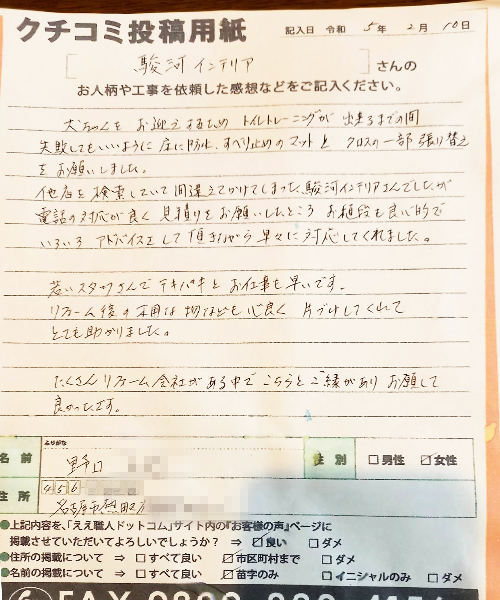 クチコミ投稿用紙
記入日 令和 5年 2月 10日
[ 駿河インテリア ] さんの
お人柄や工事を依頼した感想などをご記入ください。
犬ちゃんを お迎えするため トイレトレーニングが 出来るまでの間
失敗してもいいように 床に防水、すべり止めのマットと クロスの一部 張り替え
をお願いしました。
他店を検索していて 間違えてかけてしまった、駿河インテリアさんでしたが
電話の対応が良く 見積りをお願いしたところ お値段も良い的で
いろいろ アドバイスをして頂きながら 早々に対応してくれました。
若いスタッフさんで テキパキと お仕事も早いです。
リフォーム後の 不用な物なども 心良く 片づけしてくれて
とても助かりました。
たくさん リフォーム会社がある中で こちらと ご縁があり お願して
良かったです。
ふりがな
名 前 野口
性 別 □男性 ☑女性
住 所 456
名古屋市熱田区
●上記内容を、「ええ職人ドットコム」サイト内の『お客様の声』ページに
掲載させていただいてよろしいでしょうか? ⇒ ☑良い □ダメ
●住所の掲載について ⇒ □すべて良い ☑市区町村まで □ダメ
●名前の掲載について ⇒ □すべて良い ☑苗字のみ □イニシャルのみ □ダメ
FAX